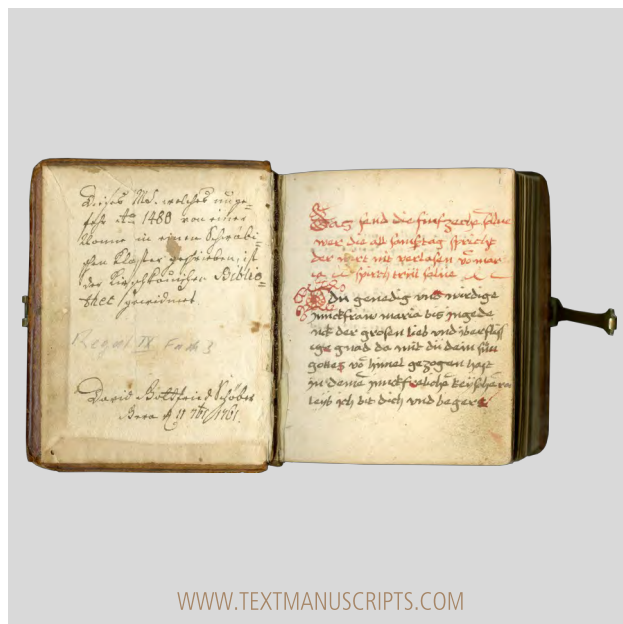 Dieses Ms. welches unge-
fehr Ao. 1488 von einer
Nonne in einem Schwäbi-
schen Closter geschrieben, ist
der Kirchbauischen Biblio-
thec gewidmet.
Regal IX Fach 3
David Gottfried Schöber
Gera 1761.
Daz send die finfzechen
wer die all samstag spricht
der wirt nit verlasen vo mar
ia
O Du genedig vnd wirdige
junckfraw maria bis ingede
nck der grosen lieb vnd iberflissi
ge gnad da mit du dein sun
gottes vo himel gezogen hast
in deine junckfreliche
leyb ich bit dich vnd beger
WWW.TEXTMANUSCRIPTS.COM